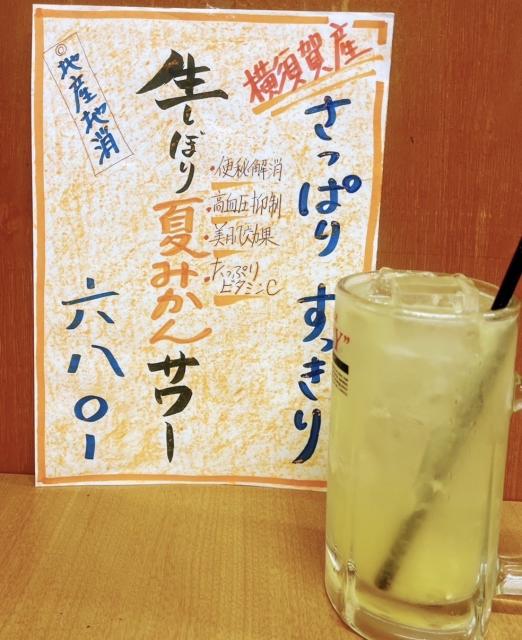 横須賀産
さっぱり すっきり
・便秘解消
・高血圧抑制
・美肌効果
・たっぷり
ビタミンC
生しぼり夏みかんサワー
◎地産地消
六八〇ー
Y"